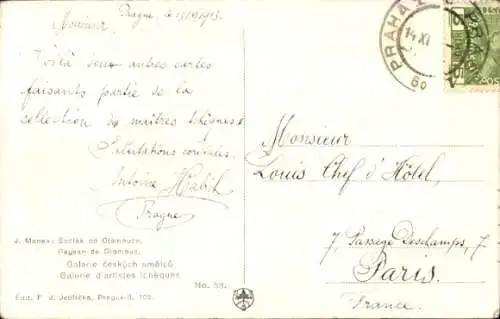 Prague, le 13/XI 1913.
Monsieur,
Voilà deux autres cartes
faisants partie de la
collection de maîtres tchèques.
Salutations cordiales.
Antoine Habich
Prague
J. Manes: Sedlák od Olomouce.
Paysan de Olomouc.
Galerie českých umělců.
Galerie d'artistes tchèques.
No. 33.
Edit. F. J. Jedlička, Prague-II. 102.
PRAHA 1
14 XI
6b
Monsieur
Louis Chef d'Hôtel,
7, Passage Deschamps, 7
Paris.
France.